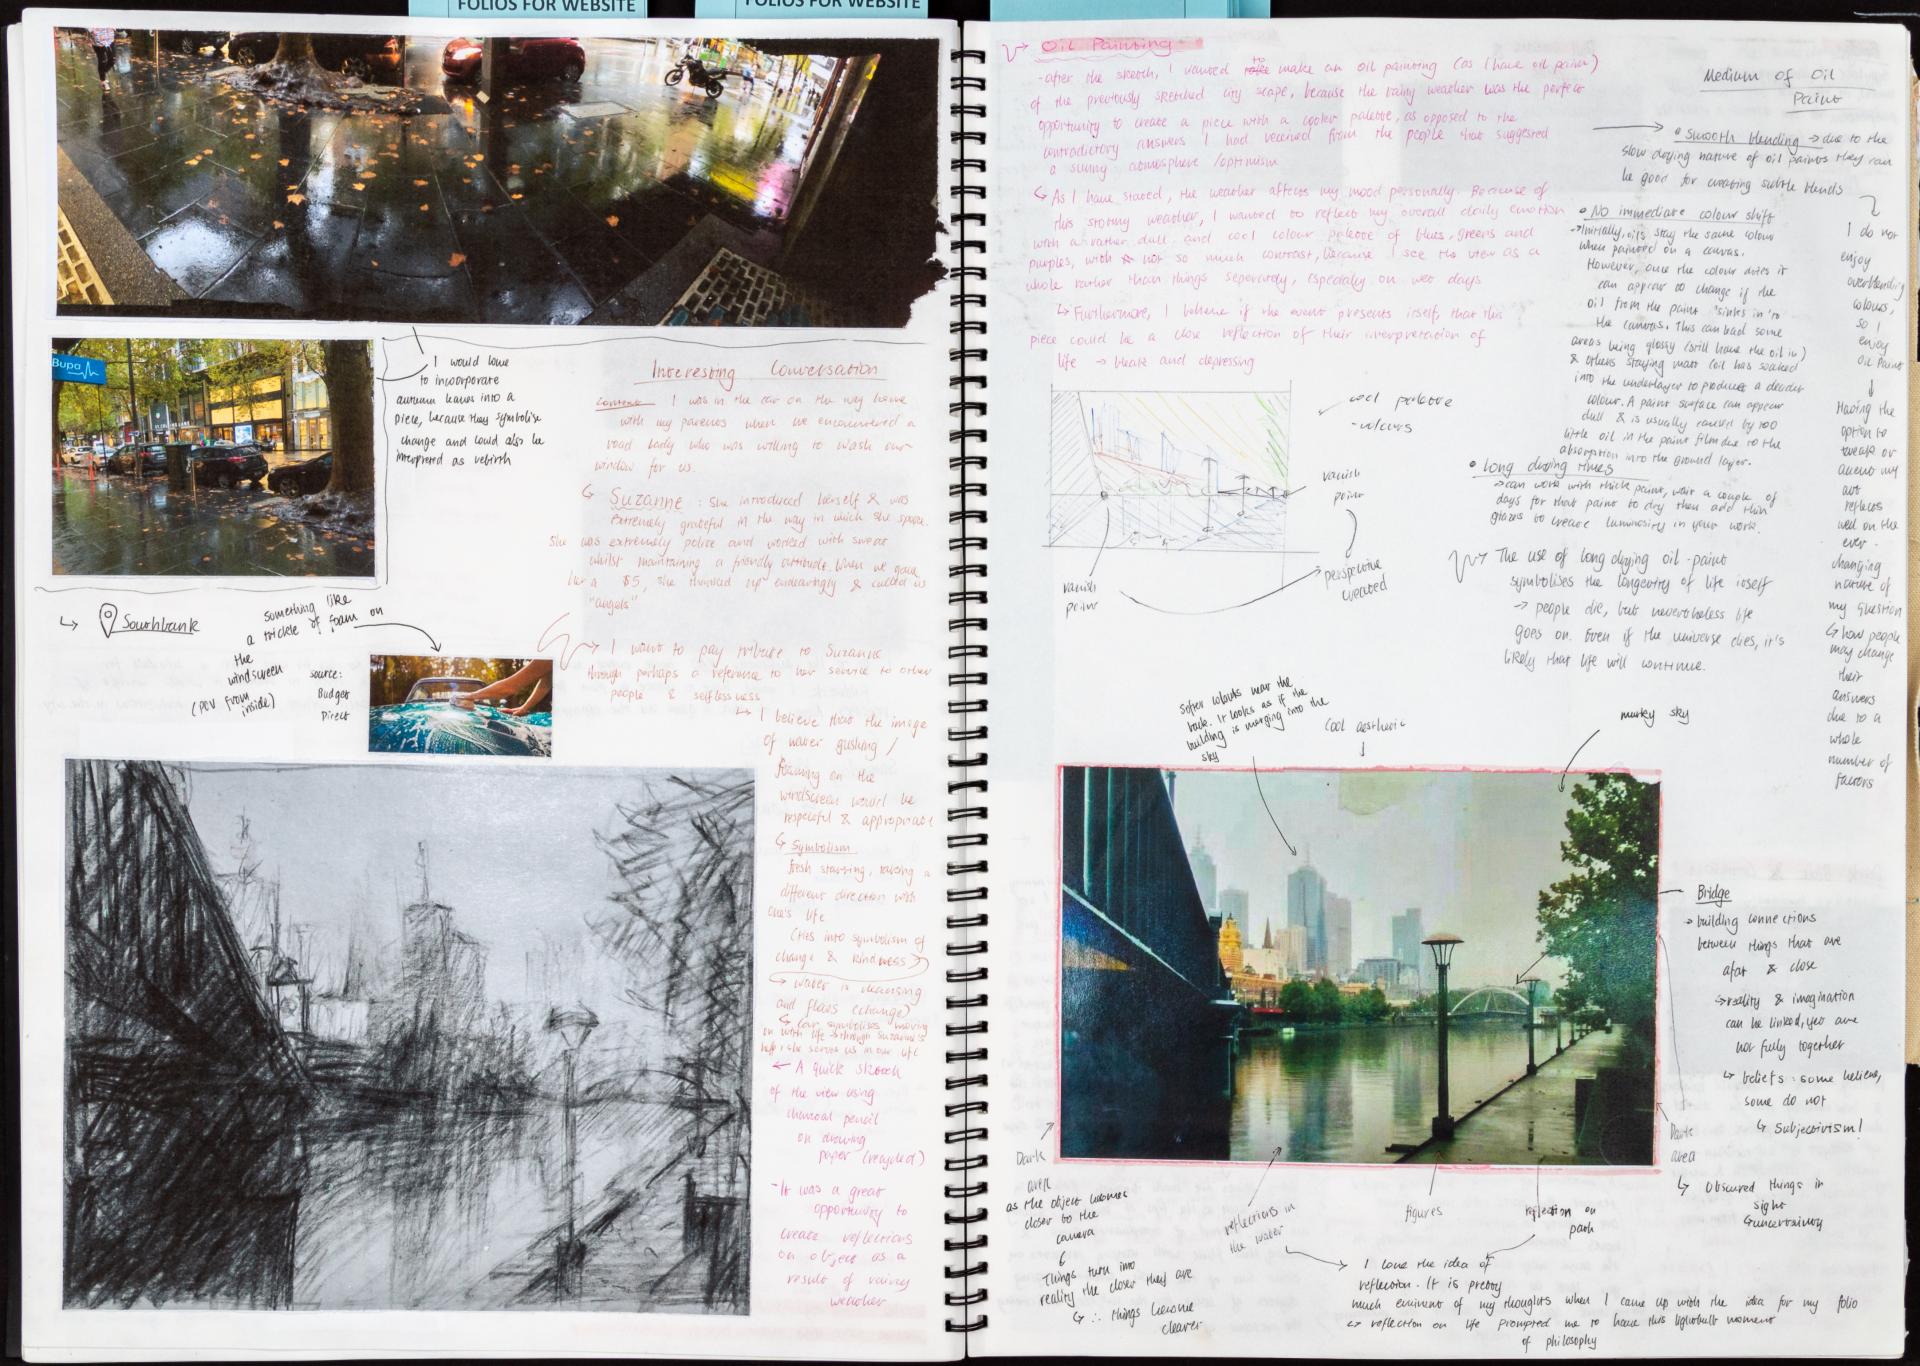 FOLIOS FOR WEBSITE
FOLIOS FOR WEBSITE
Bupa
I would love
to incorporate
autumn leaves into a
piece, because they symbolise
change and could also be
interpreted as rebirth
Interesting Conversation
Context: I was in the car on the way home
with my parents when we encountered a
road lady who was willing to wash our
window for us.
↳ Suzanne: She introduced herself & was
extremely grateful in the way in which she spoke.
She was extremely polite and worked with sweat
whilst maintaining a friendly attitude. When we gave
her a $5, she thanked us endearingly & called us
"angels"
↳ Southbank
something like
a trickle of foam on
the
windscreen
(POV from
inside)
source:
Budget
Direct
I want to pay tribute to Suzanne
through perhaps a reference to her service to other
people & selflessness
↳ I believe that the image
of water gushing /
foaming on the
windscreen would be
respectful & appropriate
↳ Symbolism
fresh starting, taking a
different direction with
one's life
(ties into symbolism of
change & kindness)
→ water is cleansing
and flows (change)
↳ Car symbolises moving
on with life → through Suzanne's
help: she serves us in our life
← A quick sketch
of the view using
charcoal pencil
on drawing
paper (recycled)
- It was a great
opportunity to
create reflections
on object as a
result of rainy
weather
Oil Painting
- after the sketch, I wanted to make an oil painting (as I have oil paint)
of the previously sketched city scape, because the rainy weather was the perfect
opportunity to create a piece with a cooler palette, as opposed to the
contradictory answers I had received from the people that suggested
a sunny atmosphere /optimism
↳ As I have stated, the weather affects my mood personally. Because of
this stormy weather, I wanted to reflect my overall daily emotion
with a rather dull and cool colour palette of blues, greens and
purples, with not so much contrast, because I see the view as a
whole rather than things seperately, especially on wet days
↳ Furthermore, I believe if the event presents itself, that this
piece could be a close reflection of their interpretation of
life → bleak and depressing
cool palette
- colours
vanish
point
vanish
point
perspective
created
Medium of Oil
Paint
• Smooth blending → due to the
slow drying nature of oil paints they can
be good for creating subtle blends
I do not
enjoy
overblending
colours,
so I
enjoy
oil Paint
↓
Having the
option to
tweak or
amend my
art
reflects
well on the
ever-
changing
nature of
my question
↳ how people
may change
their
answers
due to a
whole
number of
factors
• No immediate colour shift
→ Initially, oils stay the same colour
when painted on a canvas.
However, once the colour dries it
can appear to change if the
oil from the paint 'sinks in' to
the canvas. This can lead some
areas being glossy (still have the oil in)
& others staying matt (oil has soaked
into the underlayer to produce a
colour. A paint surface can appear
dull & is usually caused by too
little oil in the paint film due to the
absorption into the ground layer.
• Long drying times
→ can work with thick paint, wait a couple of
days for that paint to dry then add thin
glazes to create luminosity in your work.
The use of long drying oil-paint
symbolises the longevity of life itself
→ people die, but nevertheless life
goes on. Even if the universe dies, it's
likely that life will continue.
Softer colours near the
back. It looks as if the
building is merging into the
sky
Cool aesthetic
↓
murky sky
Bridge
→ building connections
between things that are
afar & close
↳ reality & imagination
can be linked, yet are
not fully together
↳ beliefs: some believe,
some do not
↳ Subjectivism!
Dark
area
↳ Obscured things in
sight
↳ uncertainty
Dark
area
as the object becomes
closer to the
camera
Things turn into
reality the closer they are
↳ ∴ things become
clearer
reflections in
the water
figures
reflection on
path
I love the idea of
reflection. It is pretty
much eminent of my thoughts when I came up with the idea for my folio
↳ reflection on life prompted me to have this lightbulb moment
of philosophy